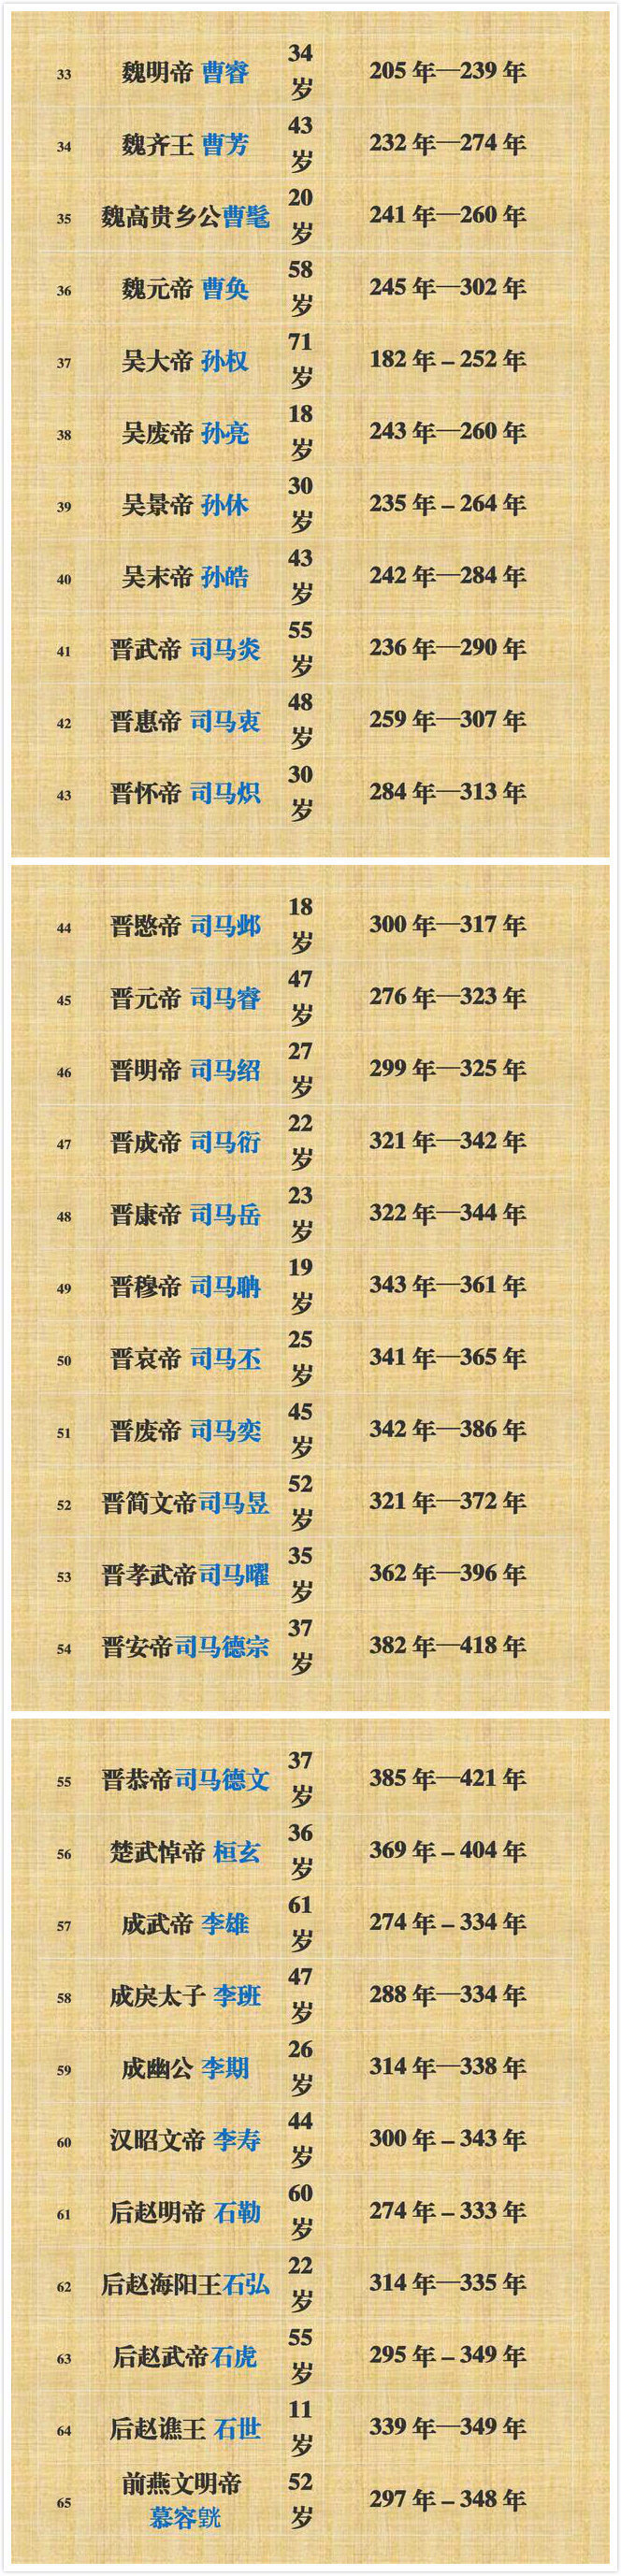 33 魏明帝 曹睿 34岁 205 年—239 年
34 魏齐王 曹芳 43岁 232 年—274 年
35 魏高贵乡公曹髦 20岁 241 年—260 年
36 魏元帝 曹奂 58岁 245 年—302 年
37 吴大帝 孙权 71岁 182 年 – 252 年
38 吴废帝 孙亮 18岁 243 年—260 年
39 吴景帝 孙休 30岁 235 年 – 264 年
40 吴末帝 孙皓 43岁 242 年—284 年
41 晋武帝 司马炎 55岁 236 年—290 年
42 晋惠帝 司马衷 48岁 259 年—307 年
43 晋怀帝 司马炽 30岁 284 年—313 年
44 晋愍帝 司马邺 18岁 300 年—317 年
45 晋元帝 司马睿 47岁 276 年—323 年
46 晋明帝 司马绍 27岁 299 年—325 年
47 晋成帝 司马衍 22岁 321 年—342 年
48 晋康帝 司马岳 23岁 322 年—344 年
49 晋穆帝 司马聃 19岁 343 年—361 年
50 晋哀帝 司马丕 25岁 341 年—365 年
51 晋废帝 司马奕 45岁 342 年—386 年
52 晋简文帝司马昱 52岁 321 年—372 年
53 晋孝武帝司马曜 35岁 362 年—396 年
54 晋安帝司马德宗 37岁 382 年—418 年
55 晋恭帝司马德文 37岁 385 年—421 年
56 楚武悼帝 桓玄 36岁 369 年 – 404 年
57 成武帝 李雄 61岁 274 年 – 334 年
58 成戾太子 李班 47岁 288 年—334 年
59 成幽公 李期 26岁 314 年—338 年
60 汉昭文帝 李寿 44岁 300 年 – 343 年
61 后赵明帝 石勒 60岁 274 年 – 333 年
62 后赵海阳王石弘 22岁 314 年—335 年
63 后赵武帝石虎 55岁 295 年 – 349 年
64 后赵谯王 石世 11岁 339 年—349 年
65 前燕文明帝 慕容皝 52岁 297 年 – 348 年